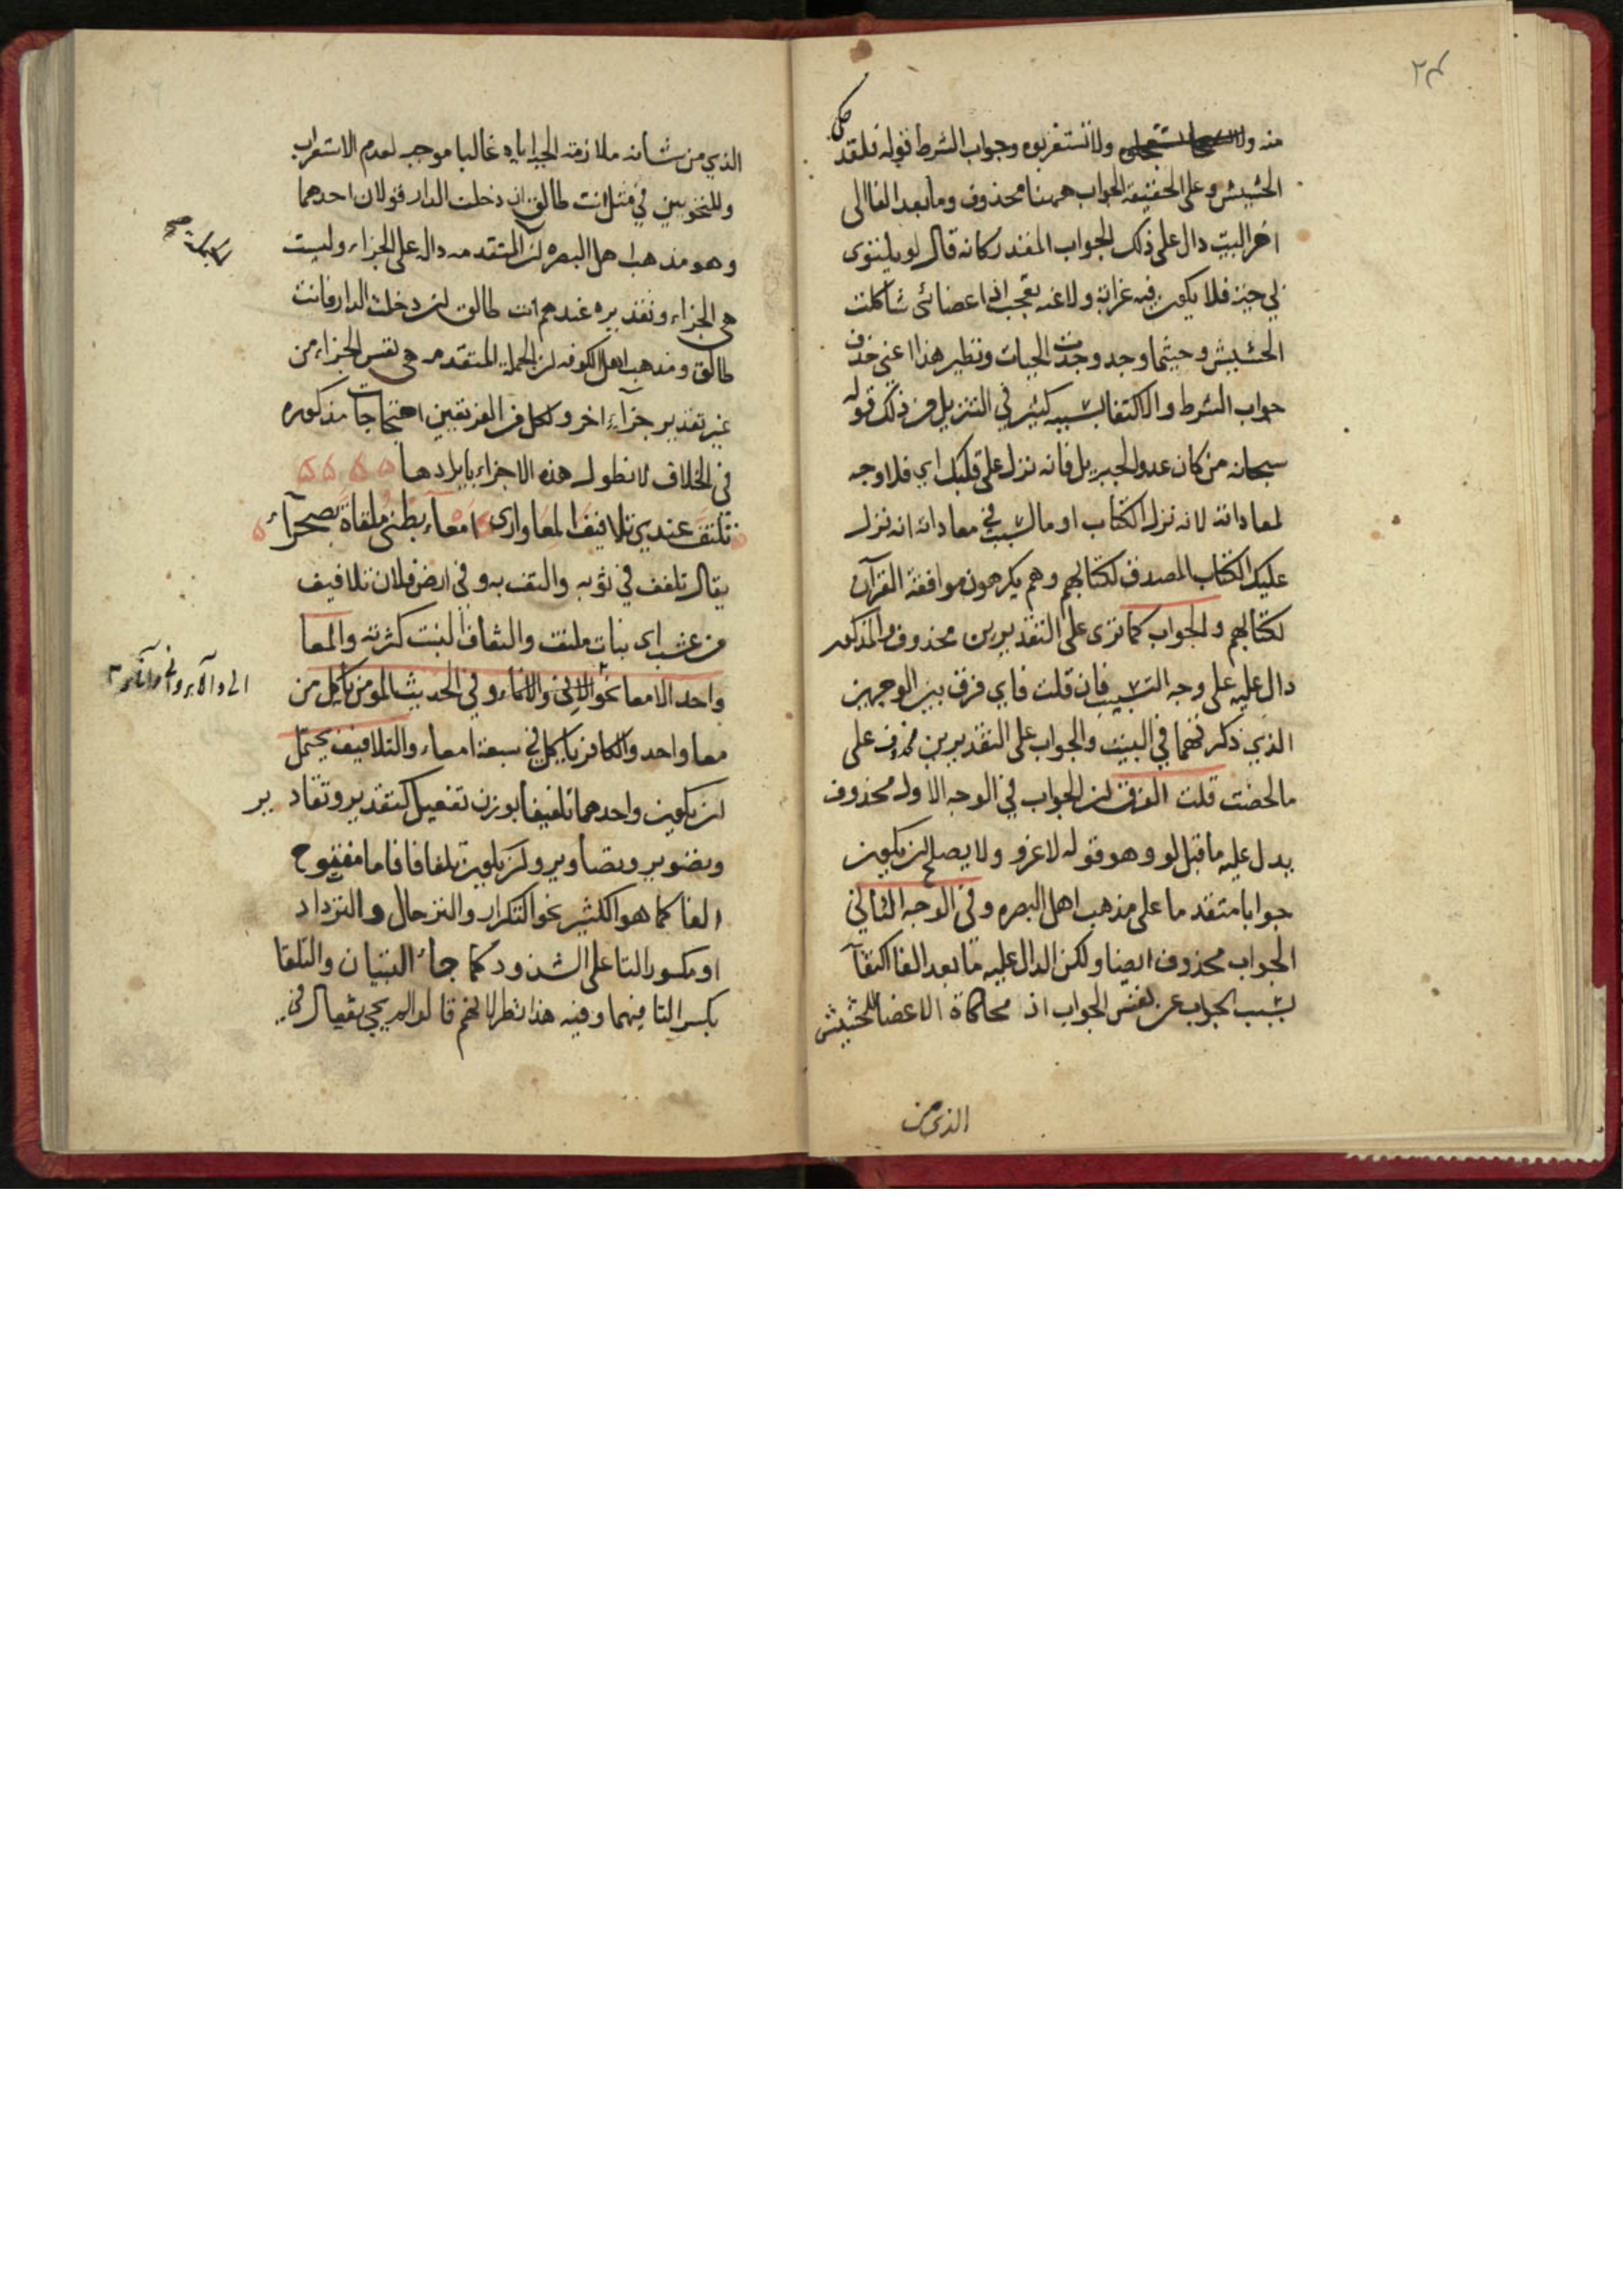 ٢٤
منه ولا تستغربوه وجواب الشرط قوله فلقد حكى
الحشيش وعلى الحقيقة الجواب ههنا محذوف وما بعد الفا الى
اخر البيت دال على ذلك الجواب المقدر كانه قال لو يلتوى
لي حية فلا يكون فيه غرابة ولاغـه تعجب اذ اعضائى شاكلت
الحشيش وحيثما وجد وجدت الحيات ونظير هذا اعنى حذف
جواب الشرط والاكتفا بسببه كثير في التنزيل من ذلك قوله
سبحانه من كان عدوا لجبريل فانه نزله على قلبك اي فلا وجه
لمعاداته لانه نزل الكتاب او مالسبب في معاداته انه نزل
عليك الكتاب المصدق لكتابهم وهم يكرهون موافقة القرآن
لكتابهم والجواب كما ترى على التقديرين محذوف والمذكور
دال عليه على وجه التسبيب فان قلت فاي فرق بين الوجهين
الذي ذكرتهما في البيت والجواب على التقديرين محذوف على
مالخصت قلت الفرق ان الجواب في الوجه الاول محذوف
يدل عليه ما قبل لو وهو قوله لاغرو ولا يصلح ان يكون
جوابا متقدما على مذهب اهل البصره وفي الوجه الثاني
الجواب محذوف ايضا ولكن الدال عليه ما بعد الفا اكتفآ
بسبب الجواب عن نفس الجواب اذ محاكاة الاعضا للحشيش
الذي من
الذي من شانه ملازمة الحية اياه غالبا موجب لعدم الاستغراب
وللنحويين في مثل انت طالق ان دخلت الدار قولان احدهما
وهو مذهب اهل البصره ان المتقدمه دال على الجزاء وليست
هي الجزاء وتقديره عندهم انت طالق ان دخلت الدار فانت
طالق ومذهب اهل الكوفه ان الجملة المتقدمه هي نفس الجزاء من
غير تقدير جزآء اخر ولكل من الفريقين احتجاجات مذكوره
في الخلاف لا نطول هذه الاجزاء بايرادها
تلتف عندي تلافيف المعا وارى امعاء بطني ملقاة بصحرآء
يقال تلفف في ثوبه والتف به وفي ارض فلان تلافيف
من عشب اى نبات ملتف والتفاف النبت كثرته والمعا
واحد الامعا نحو الانى والاناء وفي الحديث المومن ياكل من
معا واحد والكافر ياكل في سبعة امعاء والتلافيف يحتمل
ان يكون واحدهما تلفيفا بوزن تفعيل كتقدير وتقادير
وتصوير وتصاوير وان يكون تلفافا فاما مفتوح
الفا كما هو الكثير نحو التكرار والترحال والترداد
او مكسور التا على الشذود كما جاء التبيان والتلقا
بكسر التا فيهما وفيه هذا نظر لانهم قالوا لم يجي تفعال في